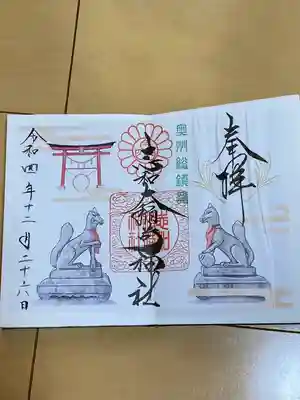 奉拝
奥州総鎮護
志和稲荷神社
令和四年十二月二十六日